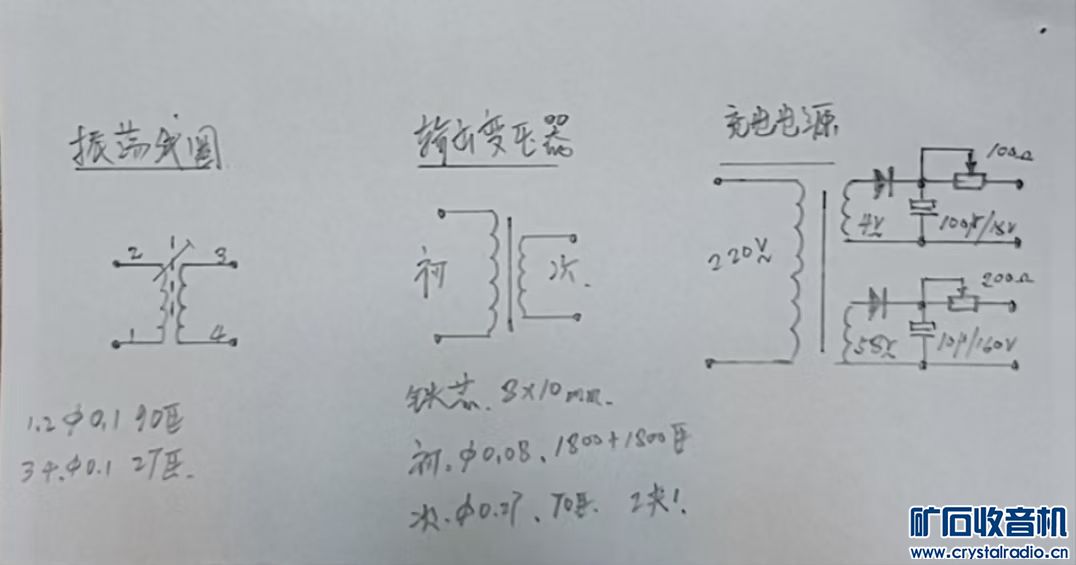 振荡线圈
2 3
1 4
1.2 φ0.1 90匝
3 4. φ0.1 27匝.
输出变压器
初 次.
铁芯. 8×10mm.
初. φ0.08、1800+1800匝
次. φ0.27、70匝.
充电电源
220V~
4V~
100Ω
100μ/18V
58V~
200Ω
10μ/160V
矿石收音机
www.crystalradio.cn